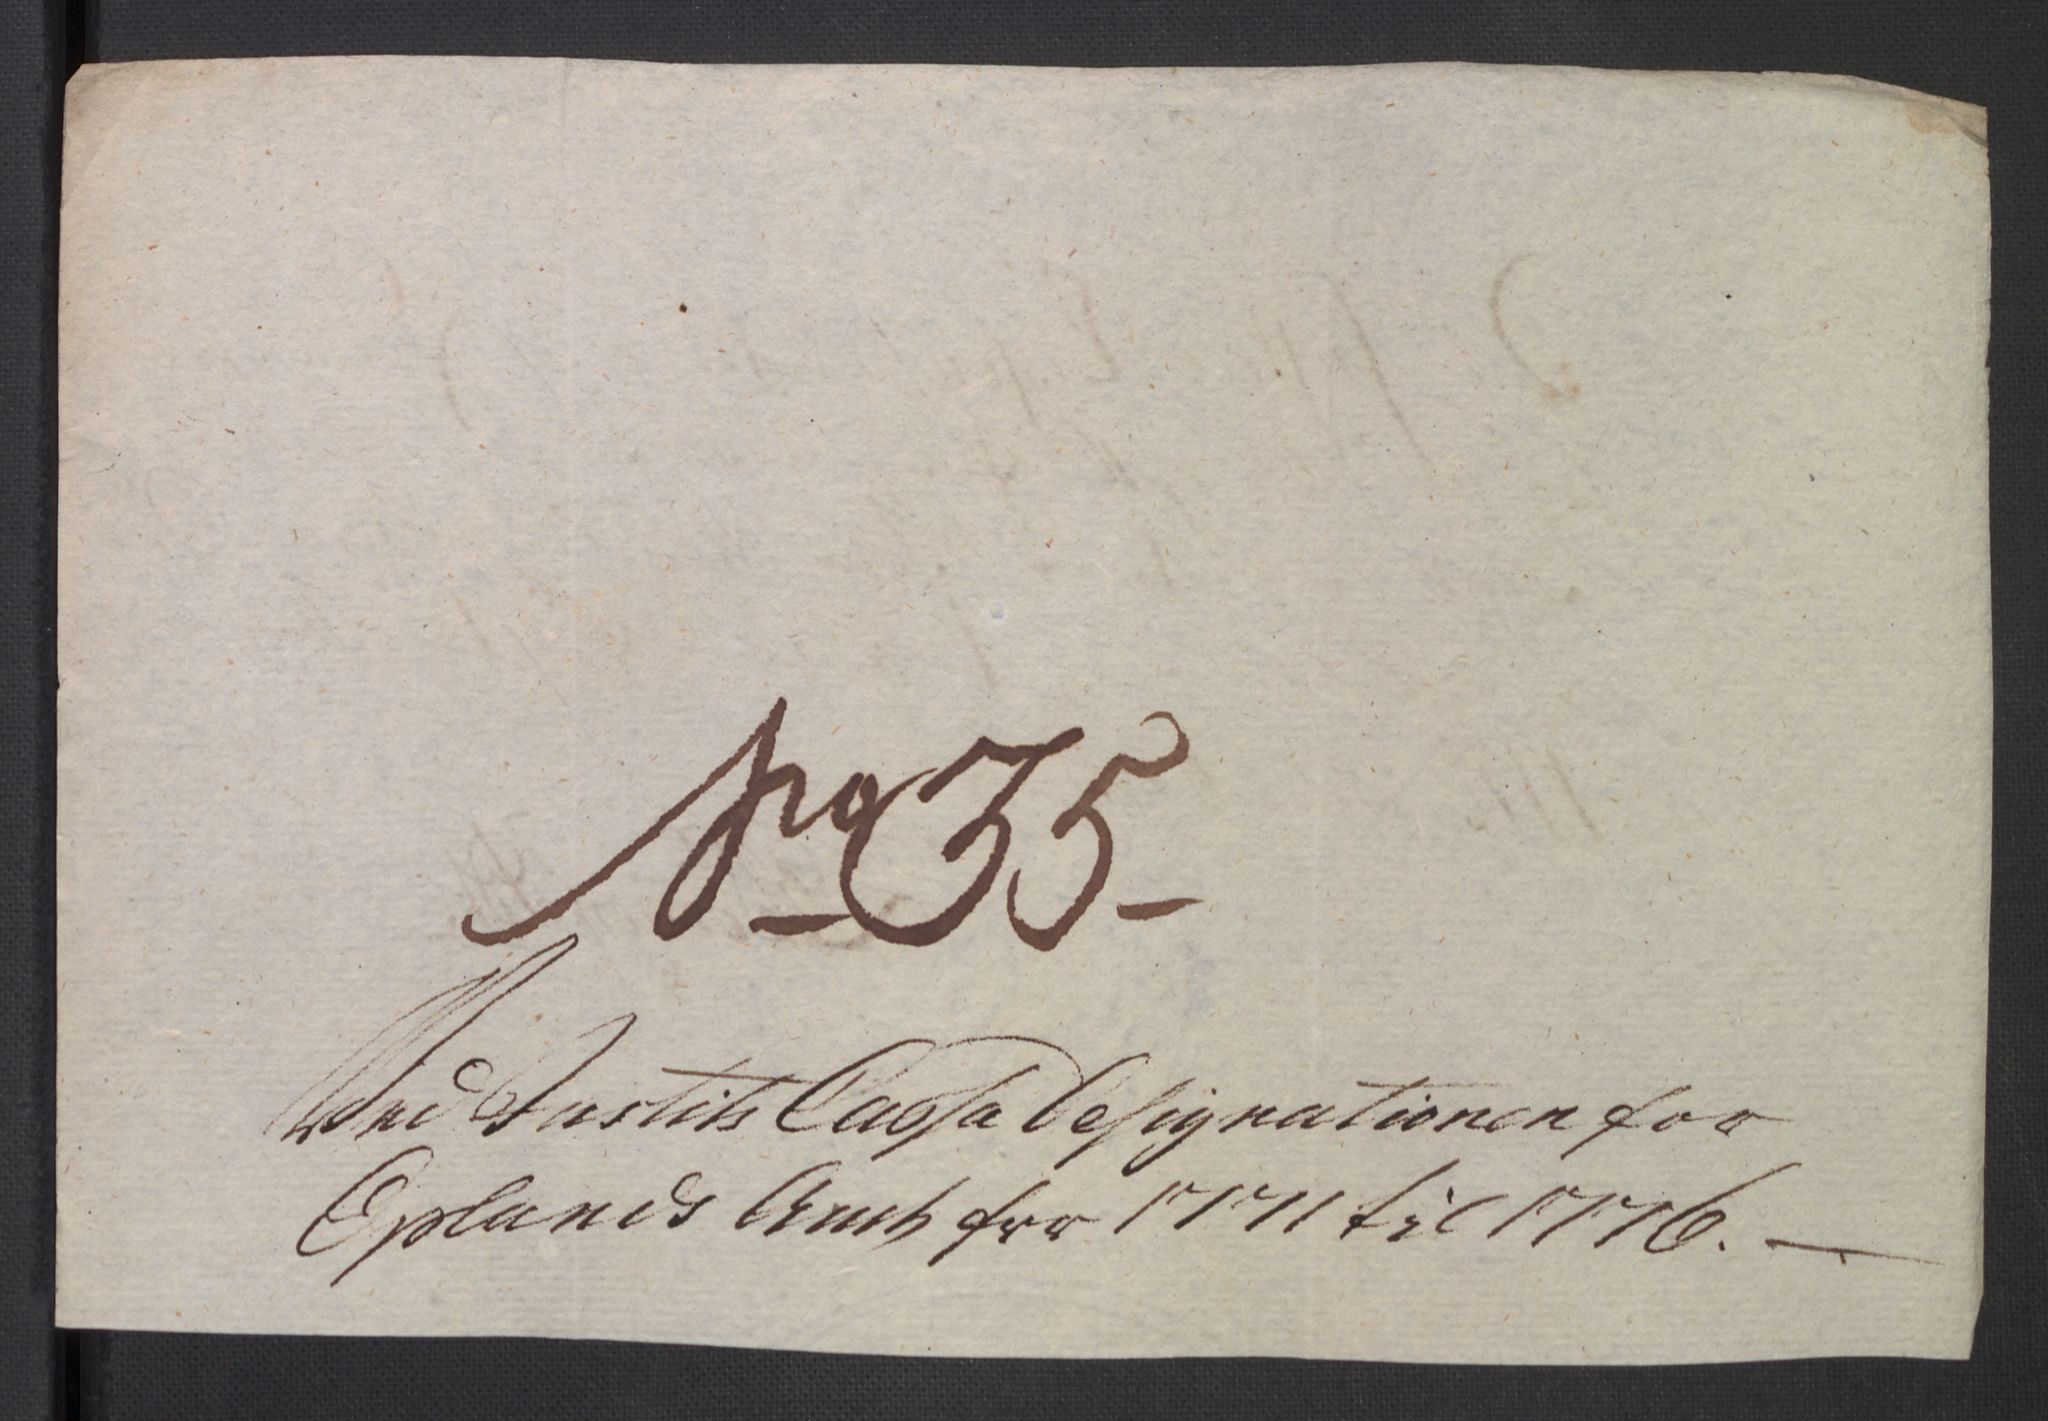 No 35
Ved Justits Cassa Designationen for
Oplands Amt for 1771 til 1776.